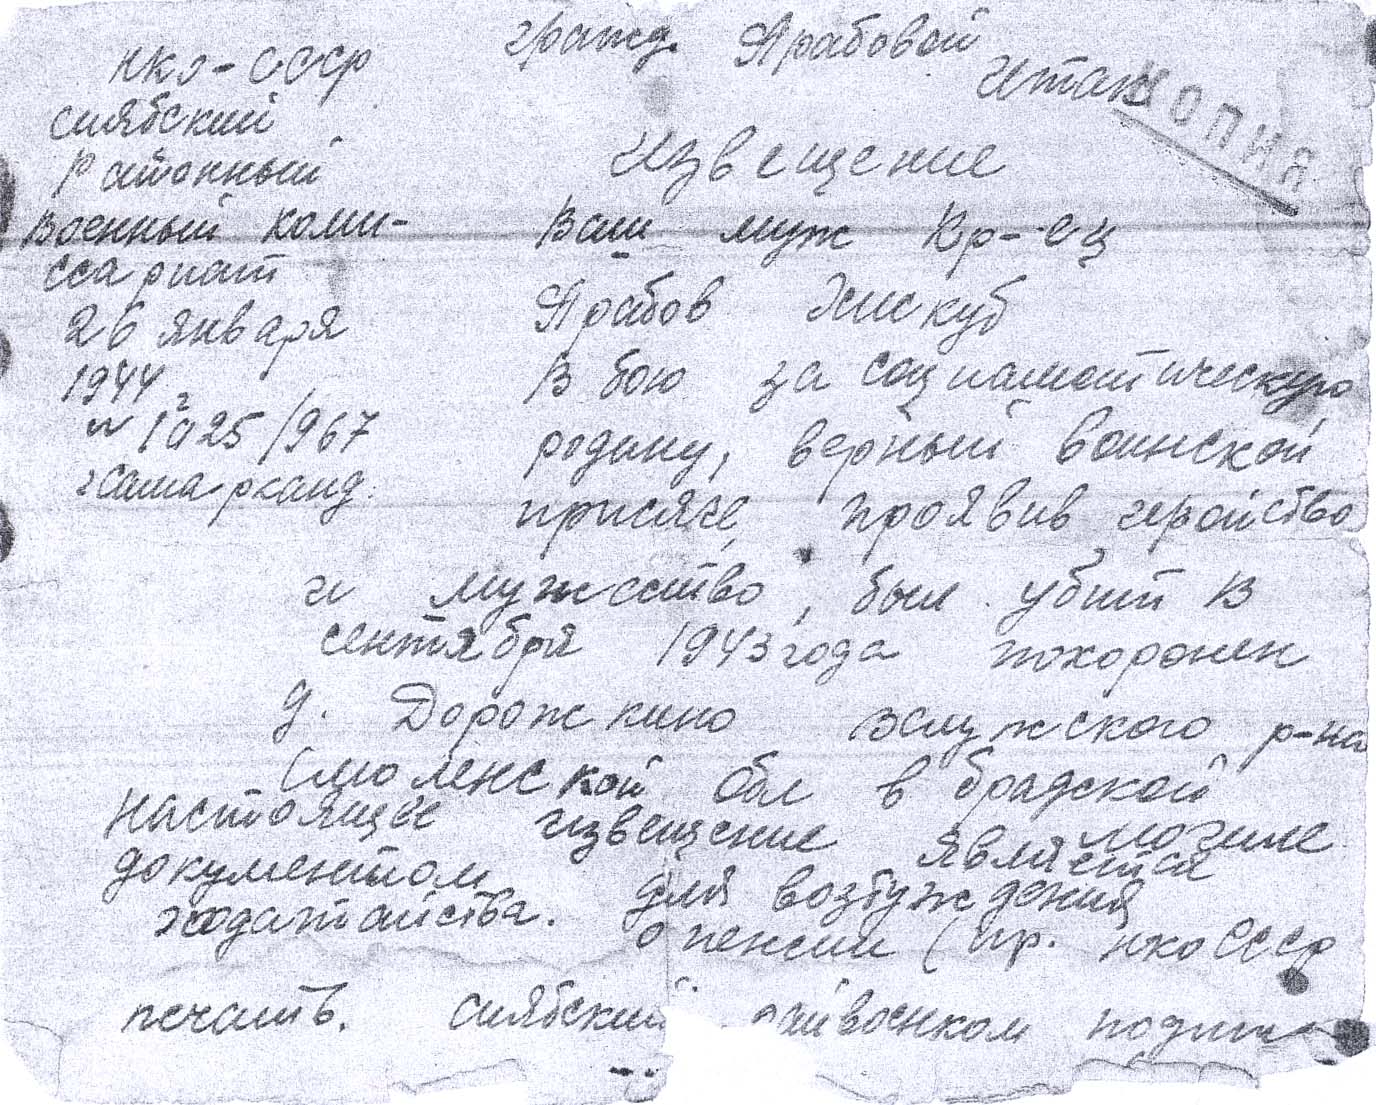 гражд. Арабовой
КОПИЯ
НКО-СССР
сиябский
районный
военный коми-
ссариат
26 января
1944 г
№ 1025/967
г Самарканд.
Извещение
Ваш муж Кр-ец
Арабов
В бою за социалистическую
родину, верный воинской
присяге, проявив геройство
и мужество, был убит в
сентября 1943 года похоронен
д. Дорожкино р-на
Смоленской обл в брадской
могиле
Настоящее извещение является
документом для возбуждения
ходатайства. о пенсии (пр. нко СССР
печать. сиябский райвоенком